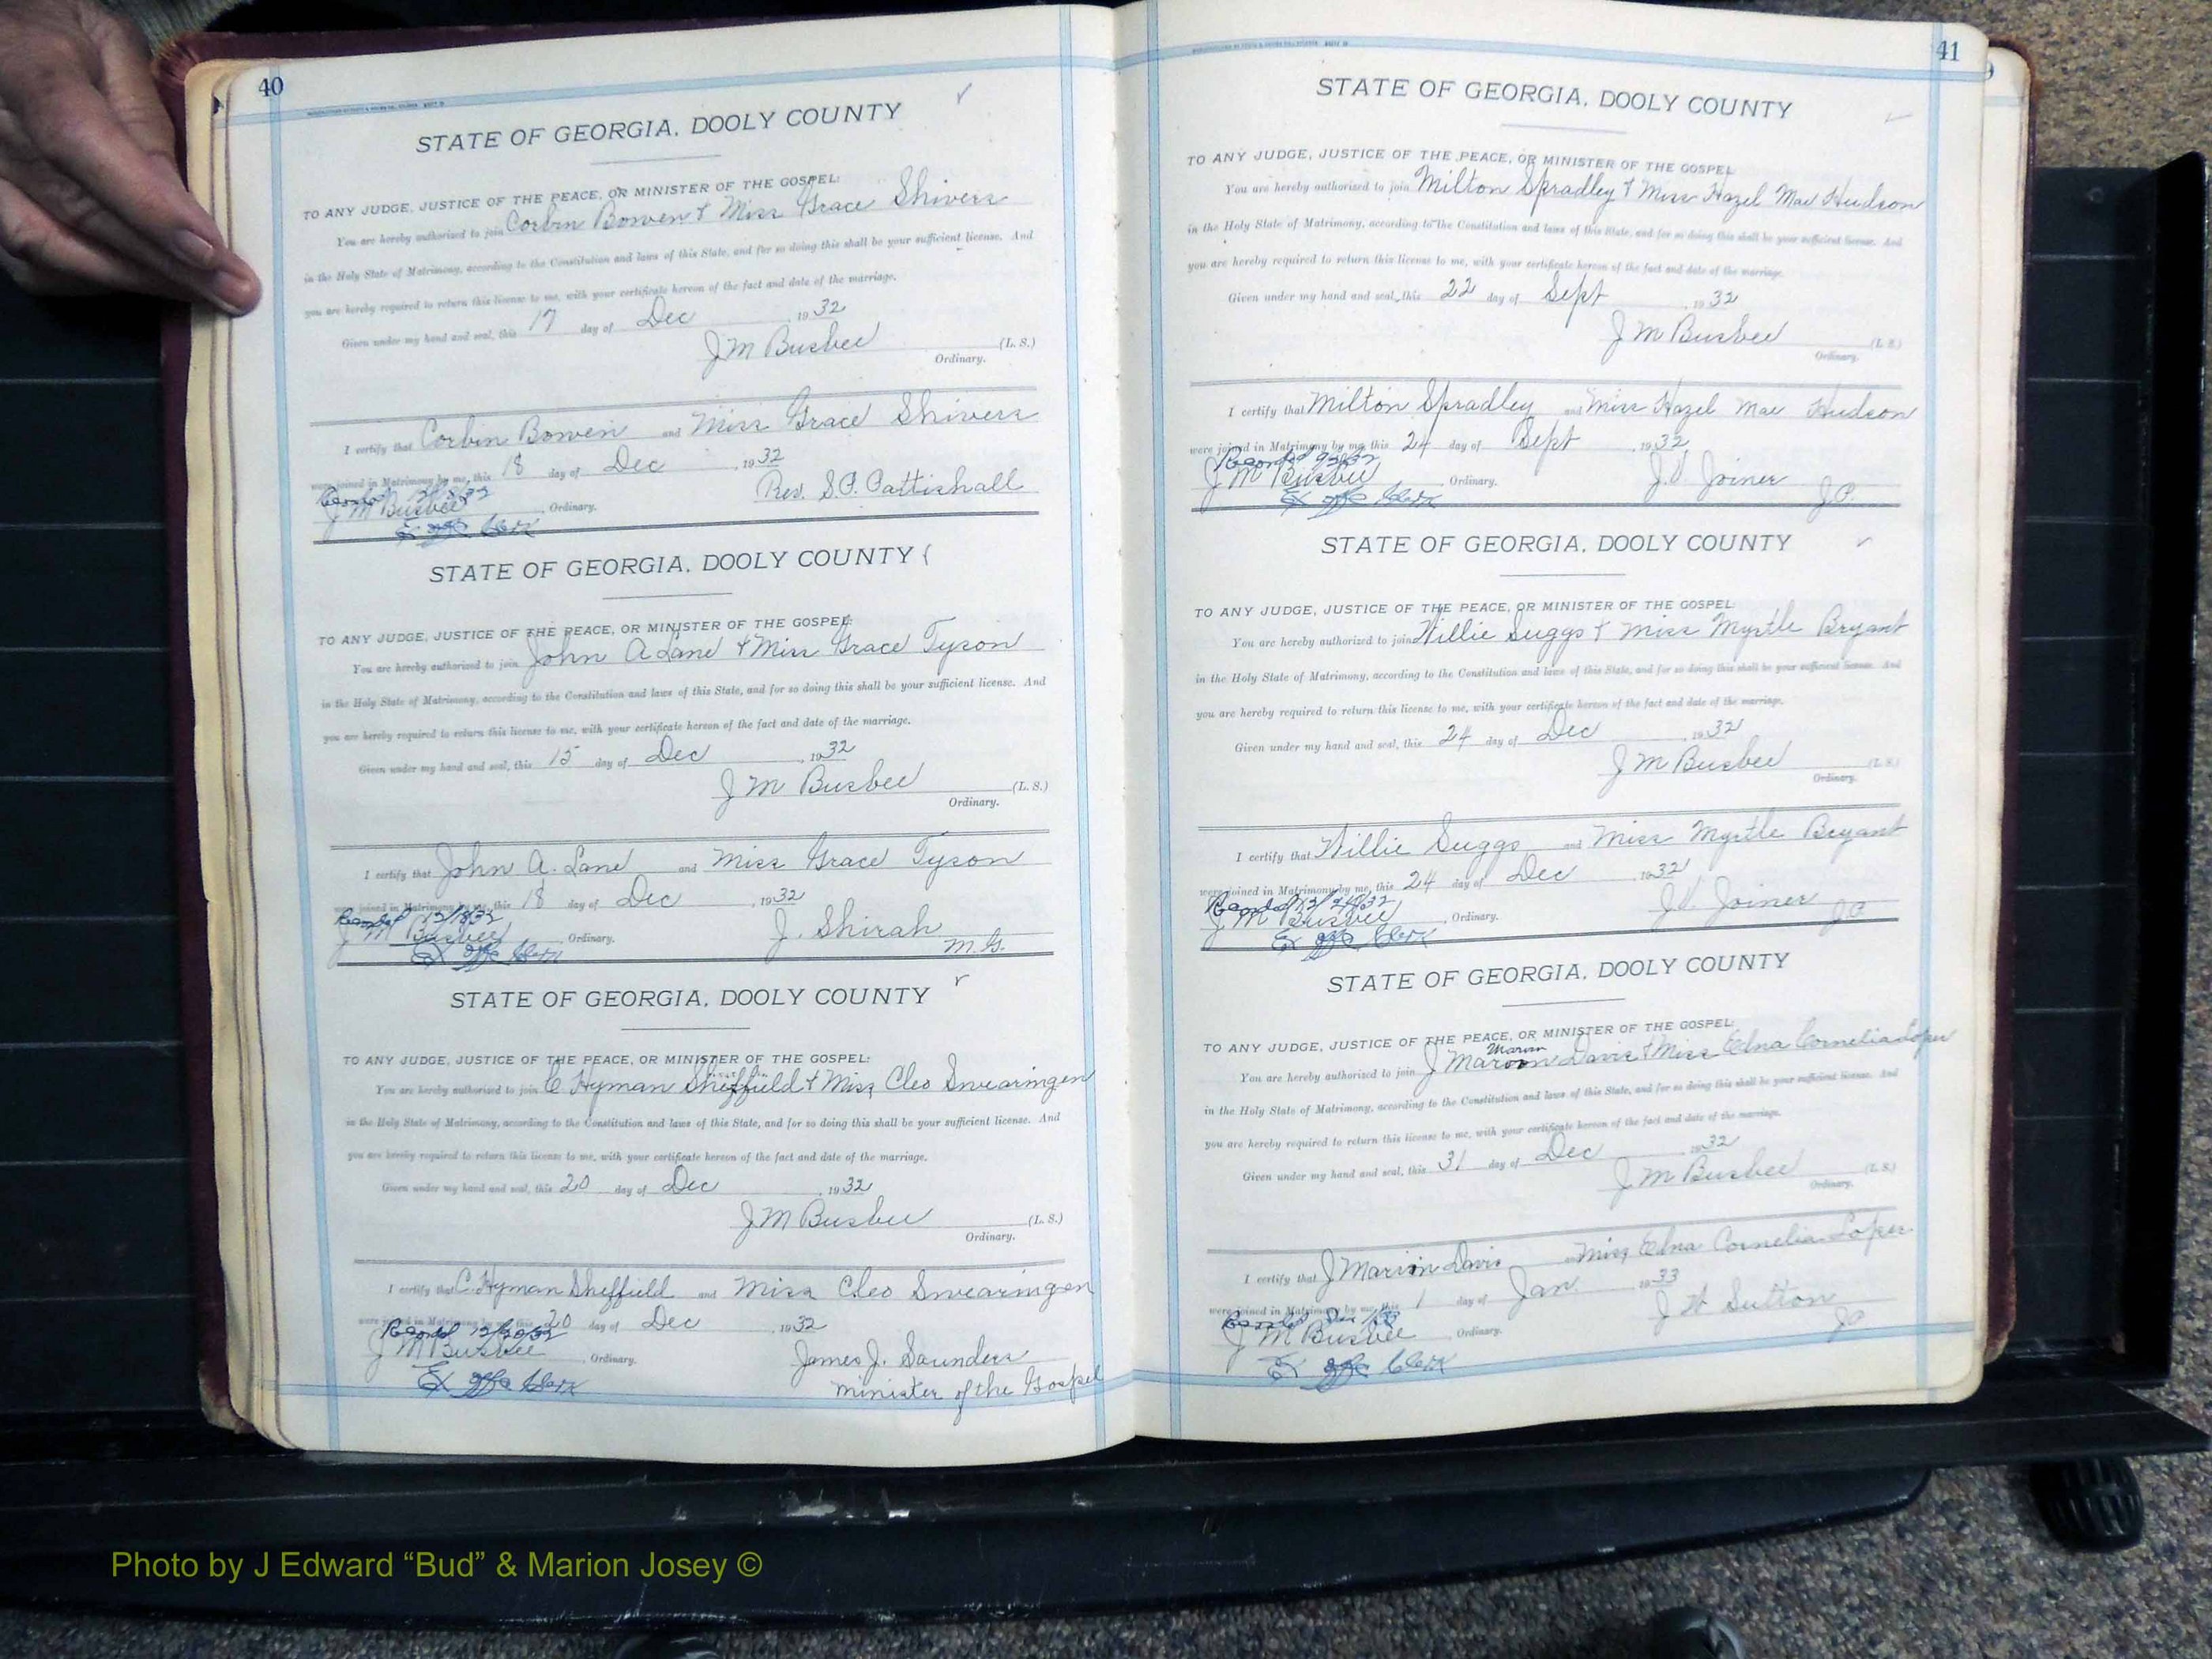 40
STATE OF GEORGIA, DOOLY COUNTY
TO ANY JUDGE, JUSTICE OF THE PEACE, OR MINISTER OF THE GOSPEL:
You are hereby authorized to join Corbin Bowen & Miss Grace Shivers
in the Holy State of Matrimony, according to the Constitution and laws of this State, and for so doing this shall be your sufficient license. And
you are hereby required to return this license to me, with your certificate hereon of the fact and date of the marriage.
Given under my hand and seal, this 17 day of Dec, 1932
J M Busbee (L. S.)
Ordinary.
I certify that Corbin Bowen and Miss Grace Shivers
were joined in Matrimony by me, this 18 day of Dec, 1932
Recorded
Rev. S.P. Pattishall
J M Busbee, Ordinary.
Ex offo Clerk
STATE OF GEORGIA, DOOLY COUNTY
TO ANY JUDGE, JUSTICE OF THE PEACE, OR MINISTER OF THE GOSPEL:
You are hereby authorized to join John A Lane & Miss Grace Tyson
in the Holy State of Matrimony, according to the Constitution and laws of this State, and for so doing this shall be your sufficient license. And
you are hereby required to return this license to me, with your certificate hereon of the fact and date of the marriage.
Given under my hand and seal, this 15 day of Dec, 1932
J M Busbee (L. S.)
Ordinary.
I certify that John A. Lane and Miss Grace Tyson
were joined in Matrimony by me, this 18 day of Dec, 1932
Recorded 12/18/32
J. Shirah
J M Busbee, Ordinary.
M.G.
Ex offo Clerk
STATE OF GEORGIA, DOOLY COUNTY
TO ANY JUDGE, JUSTICE OF THE PEACE, OR MINISTER OF THE GOSPEL:
You are hereby authorized to join C Hyman Sheffield & Miss Cleo Swearingen
in the Holy State of Matrimony, according to the Constitution and laws of this State, and for so doing this shall be your sufficient license. And
you are hereby required to return this license to me, with your certificate hereon of the fact and date of the marriage.
Given under my hand and seal, this 20 day of Dec, 1932
J M Busbee (L. S.)
Ordinary.
I certify that C. Hyman Sheffield and Miss Cleo Swearingen
were joined in Matrimony by me, this 20 day of Dec, 1932
Recorded 12/20/32
J M Busbee, Ordinary.
James J. Saunders
Ex offo Clerk
minister of the Gospel
41
STATE OF GEORGIA, DOOLY COUNTY
TO ANY JUDGE, JUSTICE OF THE PEACE, OR MINISTER OF THE GOSPEL:
You are hereby authorized to join Milton Spradley & Miss Hazel Mae Hudson
in the Holy State of Matrimony, according to the Constitution and laws of this State, and for so doing this shall be your sufficient license. And
you are hereby required to return this license to me, with your certificate hereon of the fact and date of the marriage.
Given under my hand and seal, this 22 day of Sept, 1932
J M Busbee (L. S.)
Ordinary.
I certify that Milton Spradley and Miss Hazel Mae Hudson
were joined in Matrimony by me, this 24 day of Sept, 1932
Recorded
J M Busbee, Ordinary.
J.V. Joiner
J.P.
Ex offo Clerk
STATE OF GEORGIA, DOOLY COUNTY
TO ANY JUDGE, JUSTICE OF THE PEACE, OR MINISTER OF THE GOSPEL:
You are hereby authorized to join Willie Suggs & Miss Myrtle Bryant
in the Holy State of Matrimony, according to the Constitution and laws of this State, and for so doing this shall be your sufficient license. And
you are hereby required to return this license to me, with your certificate hereon of the fact and date of the marriage.
Given under my hand and seal, this 24 day of Dec, 1932
J M Busbee (L. S.)
Ordinary.
I certify that Willie Suggs and Miss Myrtle Bryant
were joined in Matrimony by me, this 24 day of Dec, 1932
Recorded 12/24/32
J.V. Joiner
J M Busbee, Ordinary.
J.P.
Ex offo Clerk
STATE OF GEORGIA, DOOLY COUNTY
TO ANY JUDGE, JUSTICE OF THE PEACE, OR MINISTER OF THE GOSPEL:
Marion
You are hereby authorized to join J Marion Davis & Miss Edna Cornelia Loper
in the Holy State of Matrimony, according to the Constitution and laws of this State, and for so doing this shall be your sufficient license. And
you are hereby required to return this license to me, with your certificate hereon of the fact and date of the marriage.
Given under my hand and seal, this 31 day of Dec, 1932
J M Busbee (L. S.)
Ordinary.
I certify that J Marion Davis and Miss Edna Cornelia Loper
were joined in Matrimony by me, this 1 day of Jan., 1933
Recorded
J H Sutton
J M Busbee, Ordinary.
J P
Ex offo Clerk
Photo by J Edward “Bud” & Marion Josey ©